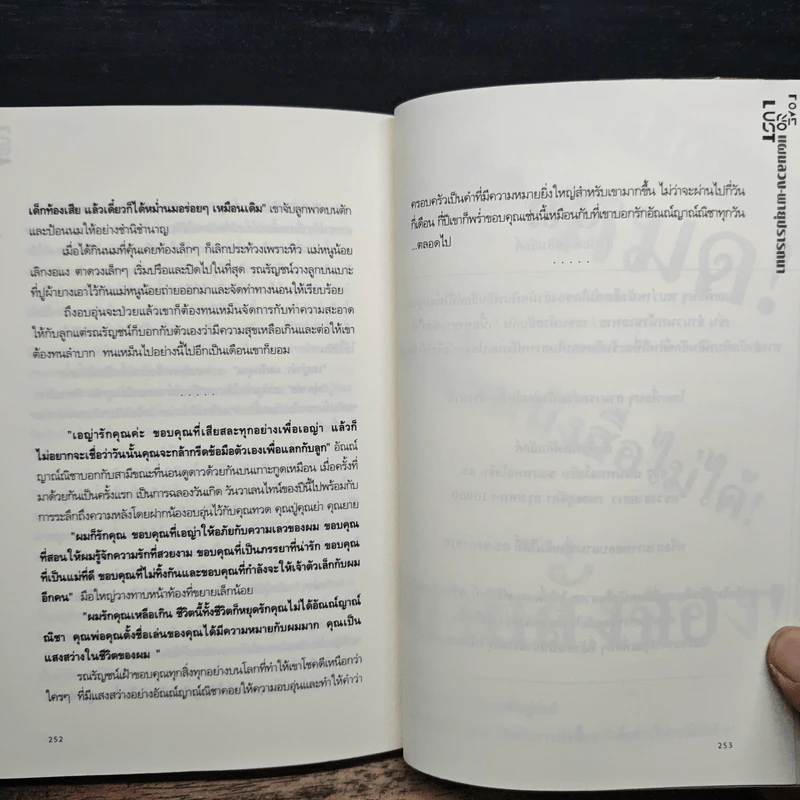 เด็กท้องเสีย แล้วเดี๋ยวก็ได้หม่ำนมอร่อยๆ เหมือนเดิม" เขาจับลูกพาดบนตัก
และป้อนนมให้อย่างชำนิชำนาญ
เมื่อได้กินนมที่คุ้นเคยท้องเล็กๆ ก็เลิกประท้วงเพราะหิว แม่หนูน้อย
เลิกงอแง ตาดวงเล็กๆ เริ่มปรือและปิดไปในที่สุด รณรัญชน์วางลูกบนเบาะ
ที่ปูผ้ายางเอาไว้กันแม่หนูน้อยถ่ายออกมาและจัดท่าทางนอนให้เรียบร้อย
ถึงองุ่นจะป่วยแล้วเขาก็ต้องทนเหม็นจัดการกับทำความสะอาด
ให้กับลูกแต่รณรัญชน์ก็บอกกับตัวเองว่ามีความสุขเหลือเกินและต่อให้เขา
ต้องทนลำบาก ทนเหม็นไปอย่างนี้ไปอีกเป็นเดือนเขาก็ยอม
. . . . .
"เอญ่ารักคุณค่ะ ขอบคุณที่เสียสละทุกอย่างเพื่อเอญ่า แล้วก็
ไม่อยากจะเชื่อว่าวันนั้นคุณจะกล้ากรีดข้อมือตัวเองเพื่อแลกกับลูก" อัณณ์
ญาณ์ณิชาบอกกับสามีขณะที่นอนดูดาวด้วยกันบนเกาะกูดเหมือน เมื่อครั้งที่
มาด้วยกันเป็นครั้งแรก เป็นการฉลองวันเกิด วันวาเลนไทน์ของปีนี้ไปพร้อมกับ
การระลึกถึงความหลังโดยฝากน้องอบอุ่นไว้กับคุณทวด คุณปู่คุณย่า คุณยาย
"ผมก็รักคุณ ขอบคุณที่เอญ่าให้อภัยกับความเลวของผม ขอบคุณ
ที่สอนให้ผมรู้จักความรักที่สวยงาม ขอบคุณที่เป็นภรรยาที่น่ารัก ขอบคุณ
ที่เป็นแม่ที่ดี ขอบคุณที่ไม่ทิ้งกันและขอบคุณที่กำลังจะให้เจ้าตัวเล็กกับผม
อีกคน" มือใหญ่วางทาบหน้าท้องที่ขยายเล็กน้อย
"ผมรักคุณเหลือเกิน ชีวิตนี้ทั้งชีวิตก็หยุดรักคุณไม่ได้อัณณ์ญาณ์
ณิชา คุณพ่อคุณตั้งชื่อเล่นของคุณได้มีความหมายกับผมมาก คุณเป็น
แสงสว่างในชีวิตของผม "
รณรัญชน์เฝ้าขอบคุณทุกสิ่งทุกอย่างบนโลกที่ทำให้เขาโชคดีเหนือกว่า
ใครๆ ที่มีแสงสว่างอย่างอัณณ์ญาณ์ณิชาคอยให้ความอบอุ่นและทำให้คำว่า
252
ครอบครัวเป็นคำที่มีความหมายยิ่งใหญ่สำหรับเขามากขึ้น ไม่ว่าจะผ่านไปกี่วัน
กี่เดือน กี่ปีเขาก็พร่ำขอบคุณเช่นนี้เหมือนกับที่เขาบอกรักอัณณ์ญาณ์ณิชาทุกวัน
...ตลอดไป
. . . . .
NO
LUST
253